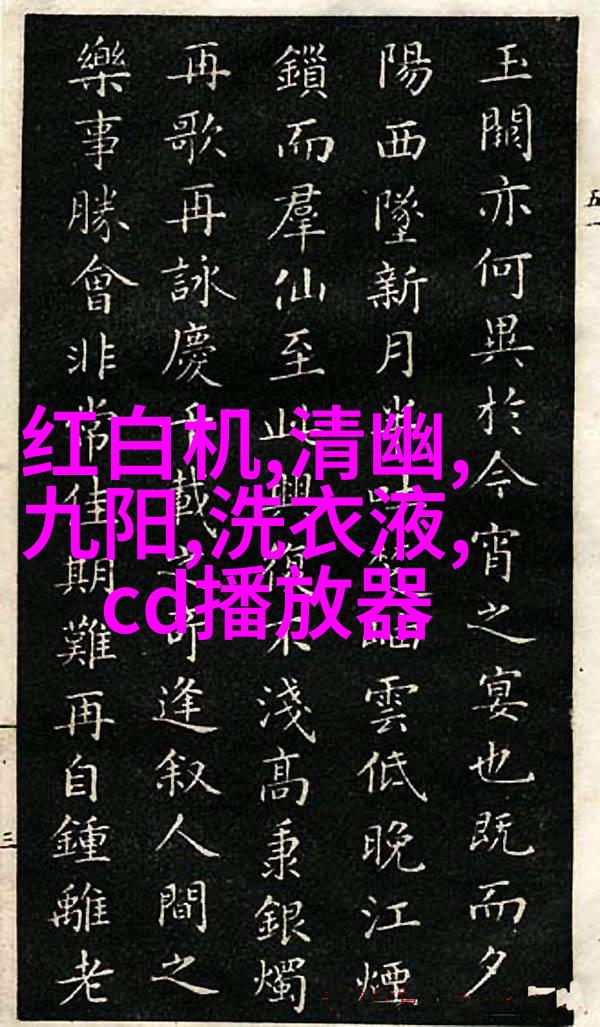 玉關亦何異於今宵之宴也既而夕
陽西墜新月吐雲低晚江煙
鎖而羣仙至此興復不淺高秉銀燭
再歌再詠慶千載之奇逢叙人間之
樂事勝會非常佳期難再自鍾離老
红白机,清幽,
九阳,洗衣液,
cd播放器
五一
三